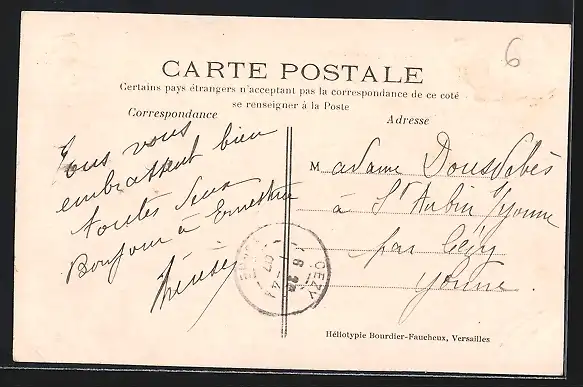 6
CARTE POSTALE
Certains pays étrangers n'acceptant pas la correspondance de ce coté
se renseigner à la Poste
Correspondance
Adresse
Tous vous
embrassent bien
toutes deux
Bonjour à Ernestine
Madame
à St Aubin s/yonne
par Cézy
yonne.
CEZY
Héliotypie Bourdier-Faucheux, Versailles